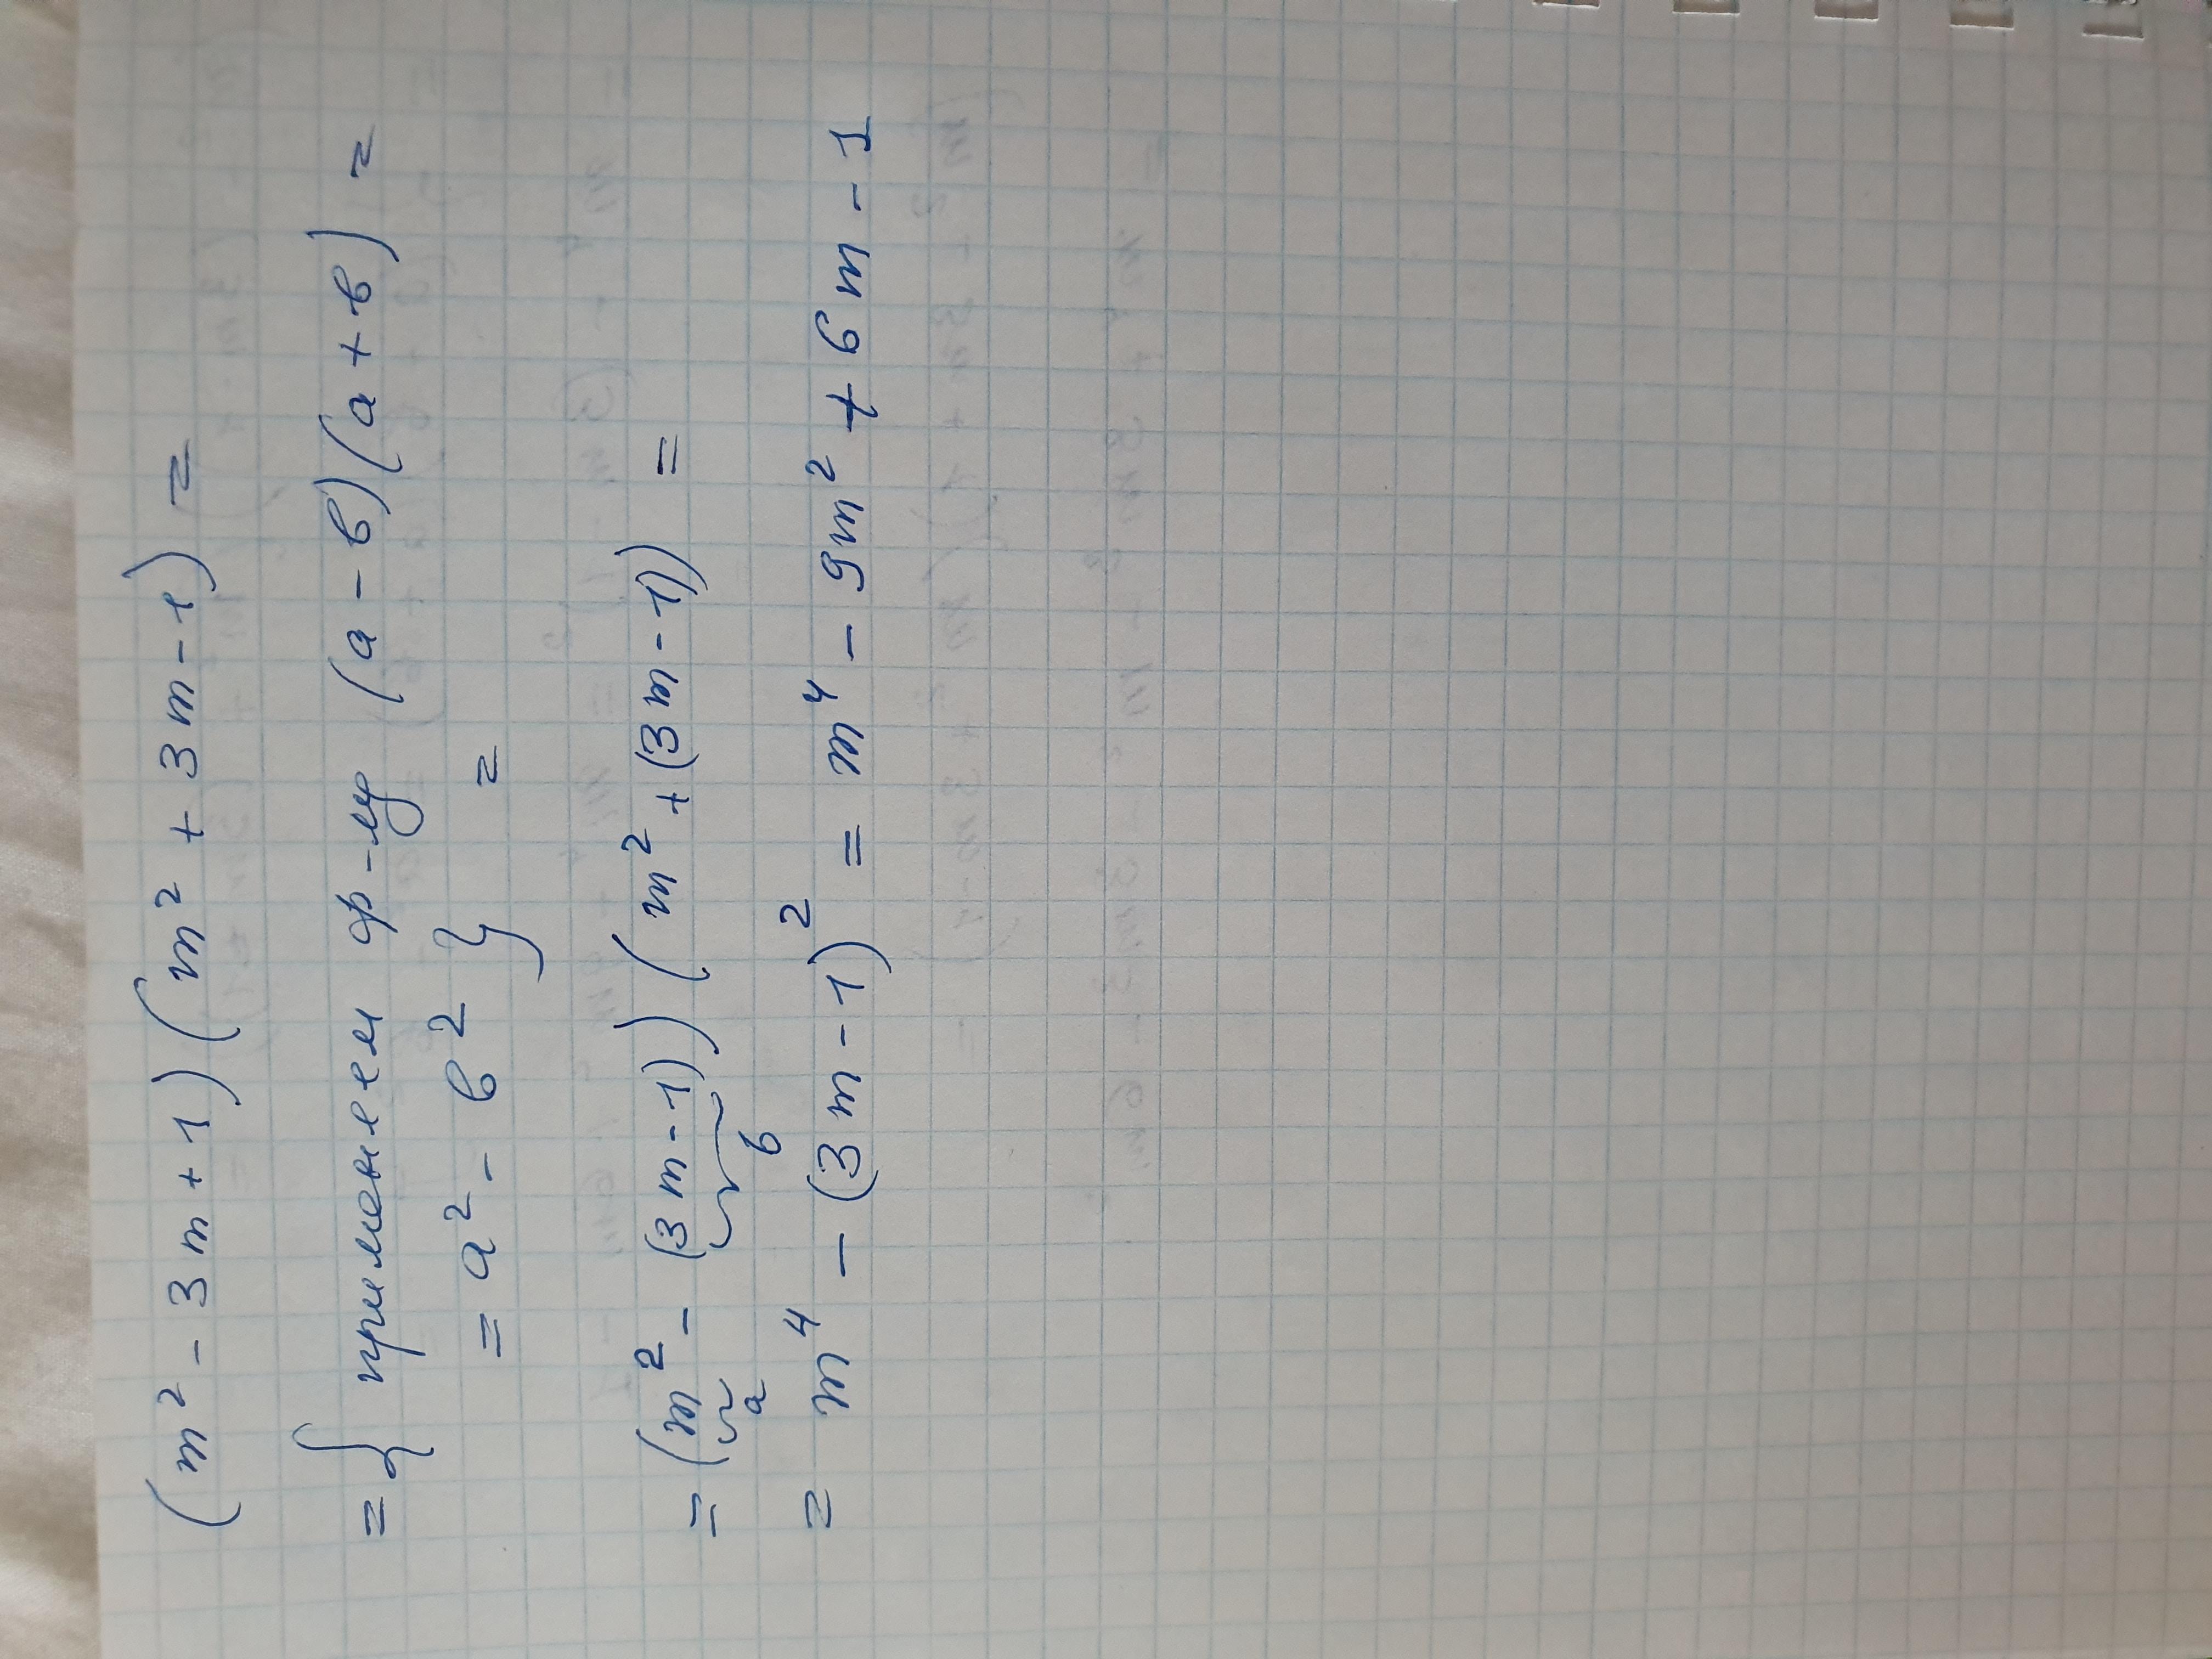 (m² - 3m + 1)(m² + 3m - 1) =
= { применяем ф-лу (a - в)(a + в) =
= a² - в² } =
= (m² - (3m - 1))(m² + (3m - 1)) =
a в
= m⁴ - (3m - 1)² = m⁴ - 9m² + 6m - 1